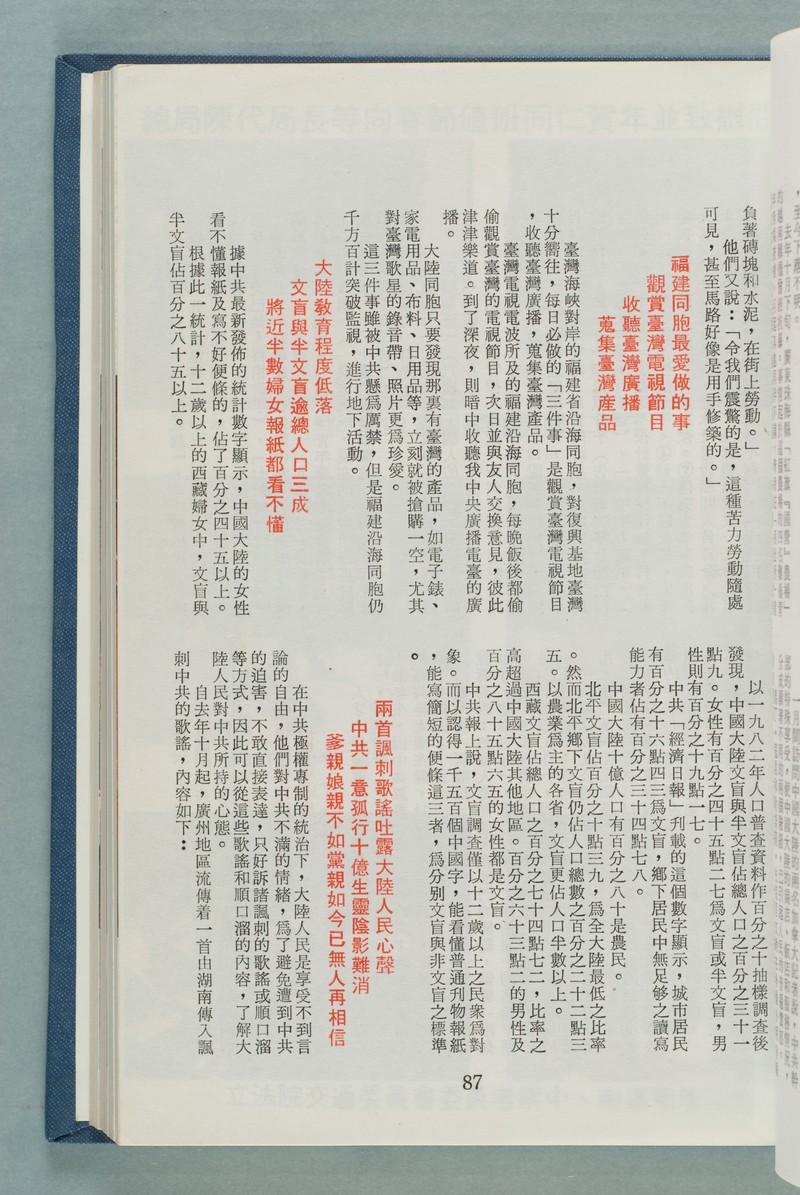 負著磚塊和水泥，在街上勞動。」
他們又說：「令我們震驚的是，這種苦力勞動隨處
可見，甚至馬路好像是用手修築的。」
福建同胞最愛做的事
觀賞臺灣電視節目
收聽臺灣廣播
蒐集臺灣產品
臺灣海峽對岸的福建省沿海同胞，對復興基地臺灣
十分嚮往，每日必做的「三件事」是觀賞臺灣電視節目
，收聽臺灣廣播，蒐集臺灣產品。
臺灣電視電波所及的福建沿海同胞，每晚飯後都偷
偷觀賞臺灣的電視節目，次日並與友人交換意見，彼此
津津樂道。到了深夜，則暗中收聽我中央廣播電臺的廣
播。
大陸同胞只要發現那裏有臺灣的產品，如電子錶、
家電用品、布料、日用品等，立刻就被搶購一空，尤其
對臺灣歌星的錄音帶、照片更爲珍愛。
這三件事雖被中共懸爲厲禁，但是福建沿海同胞仍
千方百計突破監視，進行地下活動。
大陸教育程度低落
文盲與半文盲逾總人口三成
將近半數婦女報紙都看不懂
據中共最新發佈的統計數字顯示，中國大陸的女性
看不懂報紙及寫不好便條的，佔了百分之四十五以上。
根據此一統計，十二歲以上的西藏婦女中，文盲與
半文盲佔百分之八十五以上。
以一九八二年人口普查資料作百分之十抽樣調查後
發現，中國大陸文盲與半文盲佔總人口之百分之三十一
點九。女性有百分之四十五點二七爲文盲或半文盲，男
性則有百分之十九點一七。
中共「經濟日報」刋載的這個數字顯示，城市居民
有百分之十六點四三爲文盲，鄉下居民中無足够之讀寫
能力者佔有百分之三十四點七八。
中國大陸十億人口有百分之八十是農民。
北平文盲佔百分之十點三九，爲全大陸最低之比率
。然而北平鄉下文盲仍佔人口總數之百分之二十二點三
五。以農業爲主的各省，文盲更佔人口半數以上。
西藏文盲佔總人口之百分之七十四點七二，比率之
高超過中國大陸其他地區。百分之六十三點二的男性及
百分之八十五點六五的女性都是文盲。
中共報上說，文盲調查僅以十二歲以上之民衆爲對
象。而以認得一千五百個中國字，能看懂普通刋物報紙
，能寫簡短的便條這三者，爲分別文盲與非文盲之標準
。
兩首諷刺歌謠吐露大陸人民心聲
中共一意孤行十億生靈陰影難消
爹親娘親不如黨親如今已無人再相信
在中共極權專制的統治下，大陸人民是享受不到言
論的自由，他們對中共不滿的情緒，爲了避免遭到中共
的迫害，不敢直接表達，只好訴諸諷刺的歌謠或順口溜
等方式，因此可以從這些歌謠和順口溜的內容，了解大
陸人民對中共所持的心態。
自去年十月起，廣州地區流傳着一首由湖南傳入諷
刺中共的歌謠，內容如下：
87